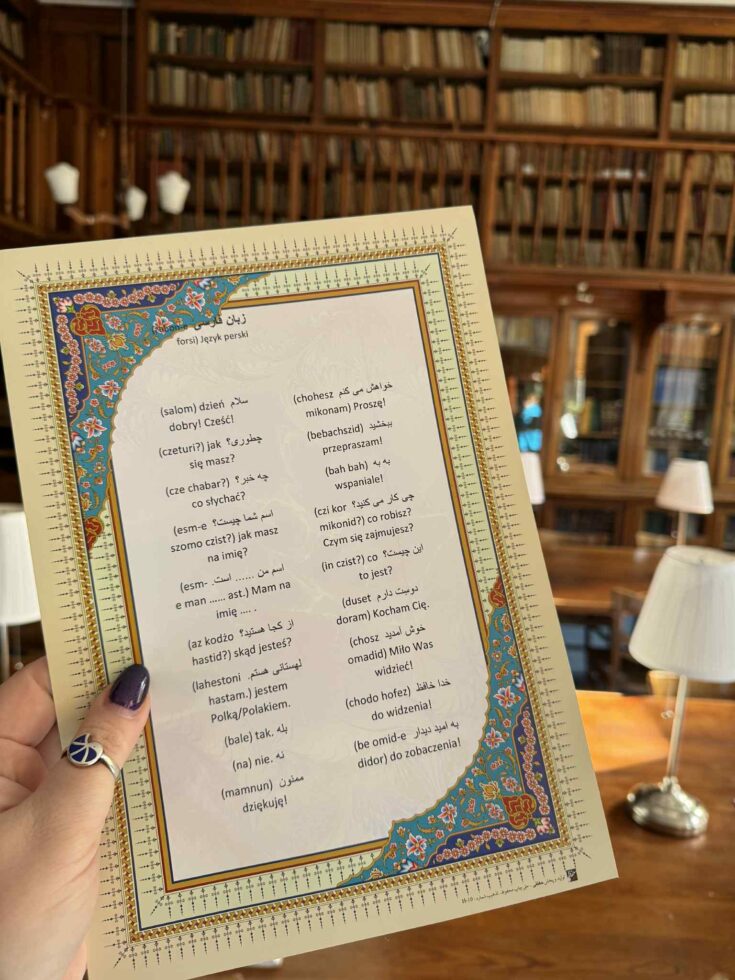 زبان فارسی
forsi) Język perski
(salom) dzień سلام
dobry! Cześć!
(czeturi?) jak چطوری؟
się masz?
(cze chabar?) چه خبر؟
co słychać?
(esm-e اسم شما چیست؟
szomo czist?) jak masz
na imię?
(esm- اسم من ...... است.
e man ...... ast.) Mam na
imię .... .
(az kodżo از کجا هستید؟
hastid?) skąd jesteś?
(lahestoni لهستانی هستم.
hastam.) jestem
Polką/Polakiem.
(bale) tak. بله
(na) nie. نه
(mamnun) ممنون
dziękuję!
(chohesz خواهش می کنم
mikonam) Proszę!
(bebachszid) ببخشید
przepraszam!
(bah bah) به به
wspaniale!
(czi kor چی کار می کنید؟
mikonid?) co robisz?
Czym się zajmujesz?
(in czist?) co این چیست؟
to jest?
(duset دوست دارم
doram) Kocham Cię.
(chosz خوش آمدید
omadid) Miło Was
widzieć!
(chodo hofez) خدا حافظ
do widzenia!
(be omid-e به امید دیدار
didor) do zobaczenia!